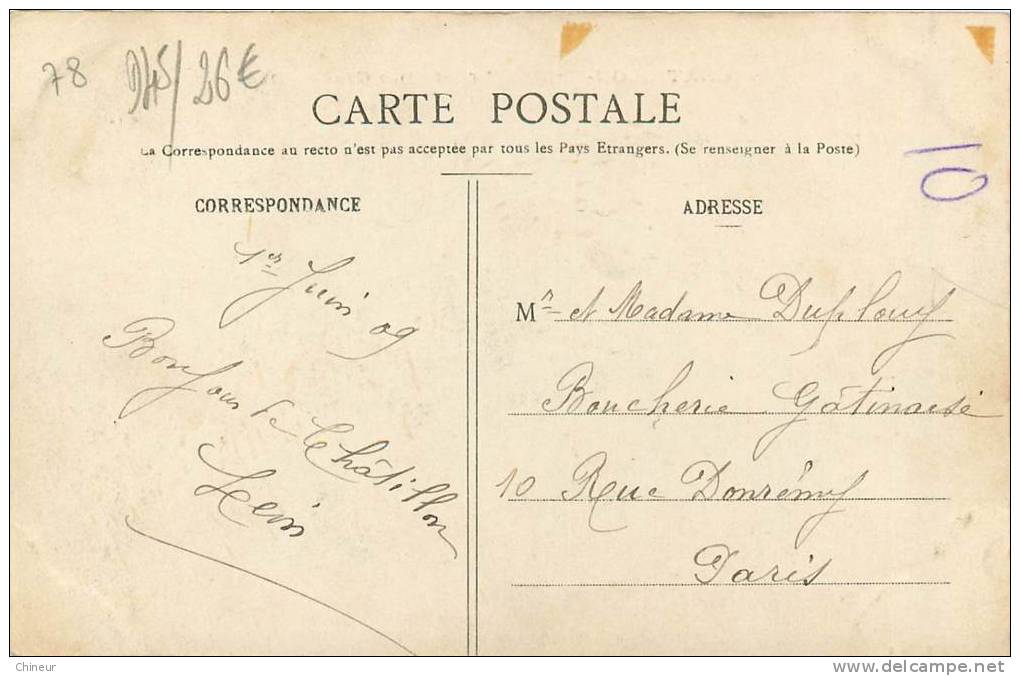 78
945/26€
CARTE POSTALE
La Correspondance au recto n'est pas acceptée par tous les Pays Etrangers. (Se renseigner à la Poste)
10
CORRESPONDANCE
1er Juin 09
Bonjour de Châtillon
ADRESSE
Mr et Madame Duflouy
Boucherie Gâtinaise
10 Rue Donrémy
Paris
Chineur
www.delcampe.net